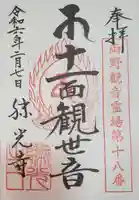 奉拝
河野観音霊場第十八番
十一面観世音
弥光寺
令和六年二月七日